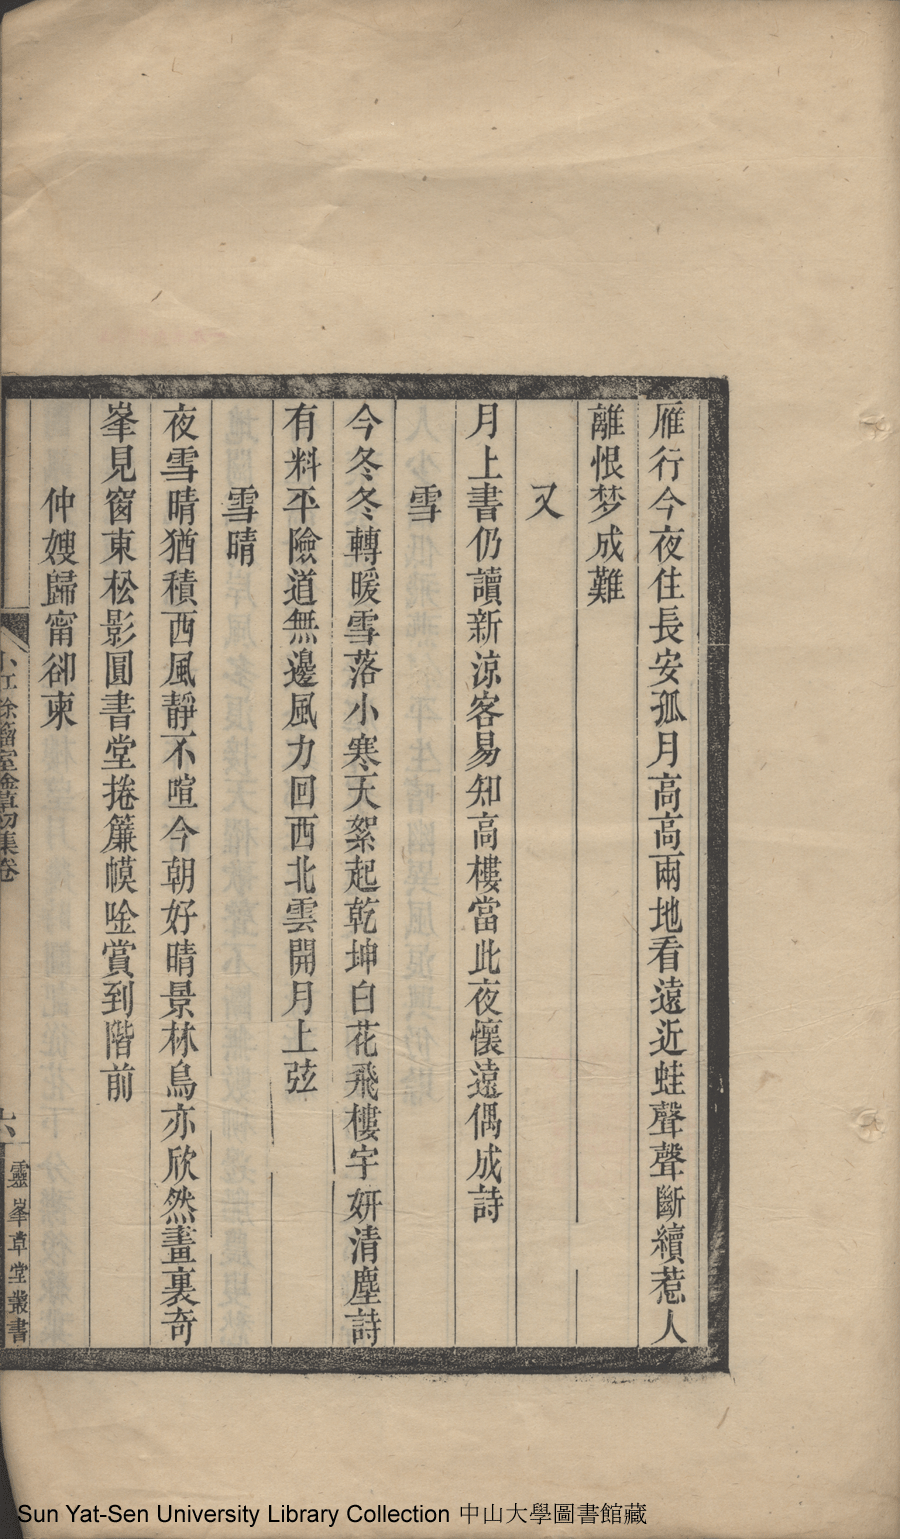 雁行今夜住長安孤月高高兩地看遠近蛙聲聲斷續惹人
離恨梦成難
又
月上書仍讀新涼客易知高樓當此夜懷遠偶成詩
雪
今冬冬轉暖雪落小寒天絮起乾坤白花飛樓宇妍清塵詩
有料平險道無邊風力回西北雲開月上弦
雪晴
夜雪晴猶積西風靜不喧今朝好晴景林鳥亦欣然畫裏奇
峯見窗東松影圓書堂捲簾幙唫賞到階前
仲嫂歸甯卻柬
室唫草初集卷
六
靈峯草堂叢書
Sun Yat-Sen University Library Collection 中山大學圖書館藏